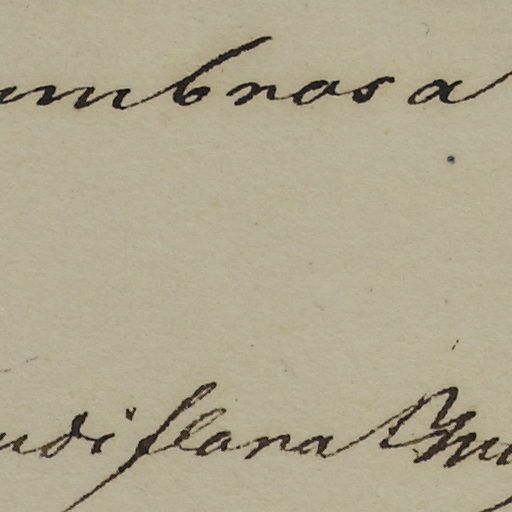 umbrosa
ndiflana